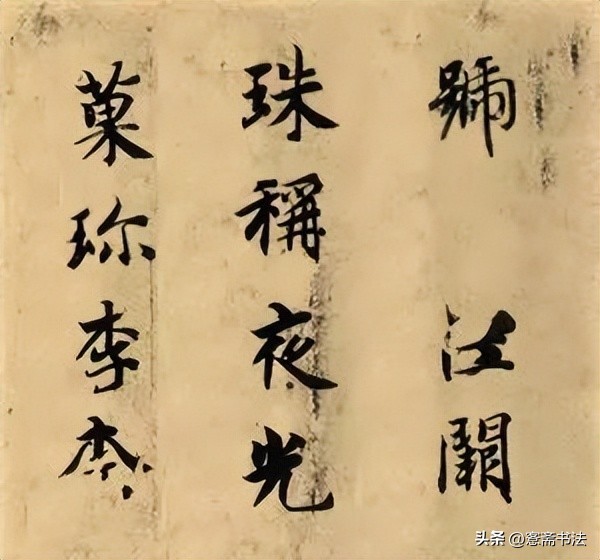 號巨闕
珠稱夜光
菓珎李柰
头条 @窻斋书法